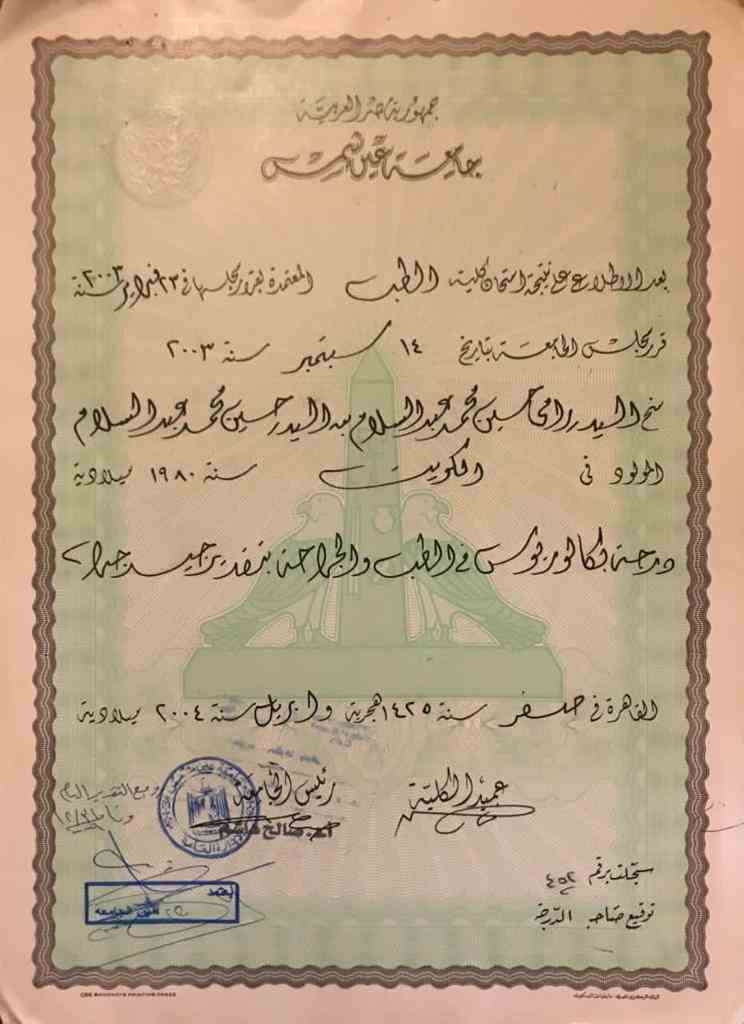 جمهورية مصر العربية
جامعة عين شمس
بعد الاطلاع على نتيجة امتحان كلية الطب المعتمدة بقرار مجلسها في ٢٣ فبراير سنة ٢٠٠٣
قرر مجلس الجامعة بتاريخ ١٤ سبتمبر سنة ٢٠٠٣
منح السيد رامي حسين محمد عبد السلام بن السيد حسين محمد عبد السلام
المولود في الكويت سنة ١٩٨٠ ميلادية
درجة بكالوريوس في الطب والجراحة بتقدير جيد جدا
القاهرة في صفر سنة ١٤٢٥ هجرية وابريل سنة ٢٠٠٤ ميلادية
عميد الكلية
رئيس الجامعة
أ.د. صالح هاشم
سجلت برقم ٤٥٢
توقيع صاحب الدرجة
يعتمد
CBE BANKNOTE PRINTING PRESS